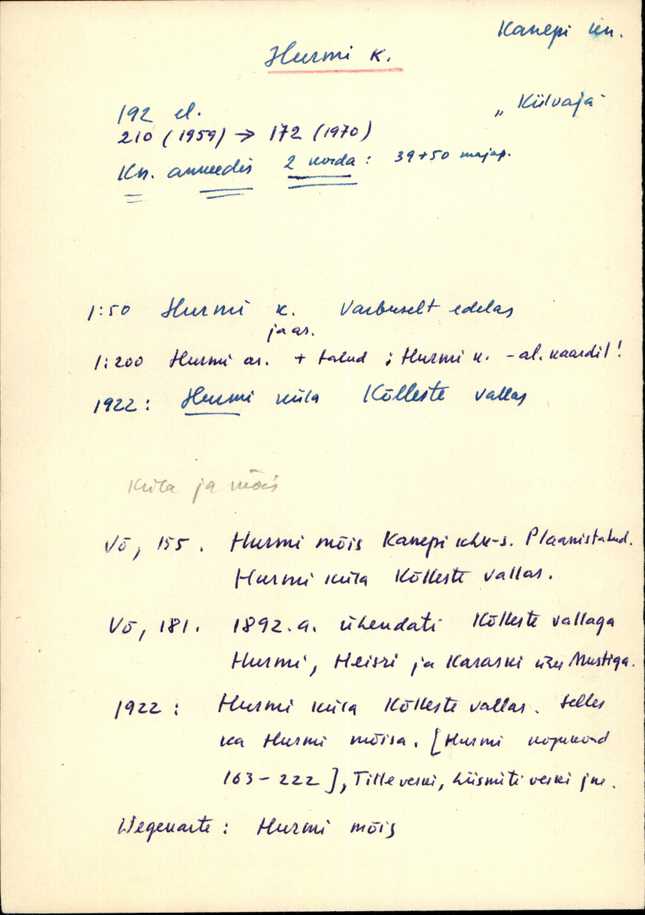 Kanepi kn.
Hurmi k.
192 el.
„Külvaja"
210 (1959) → 172 (1970)
Kn. annedis 2 korda: 39+50 majap.
1:50 Hurmi k. Varbuselt edelas
ja as.
1:200 Hurmi as. + talud ; Hurmi k. - al. kaardil!
1922: Hurmi küla Kõlleste vallas
Küla ja mõis
Võ, 155. Hurmi mõis Kanepi khk-s. Plaanistatud.
Hurmi küla Kõlleste vallas.
Võ, 181. 1892.a. ühendati Kõlleste vallaga
Hurmi, Heisri ja Karaski ühes Mustiga.
1922: Hurmi küla Kõlleste vallas. Selles
ka Hurmi mõisa. [Hurmi kogukond
163-222], Tille veski, Liismiti veski jne.
Wegekarte: Hurmi mõis